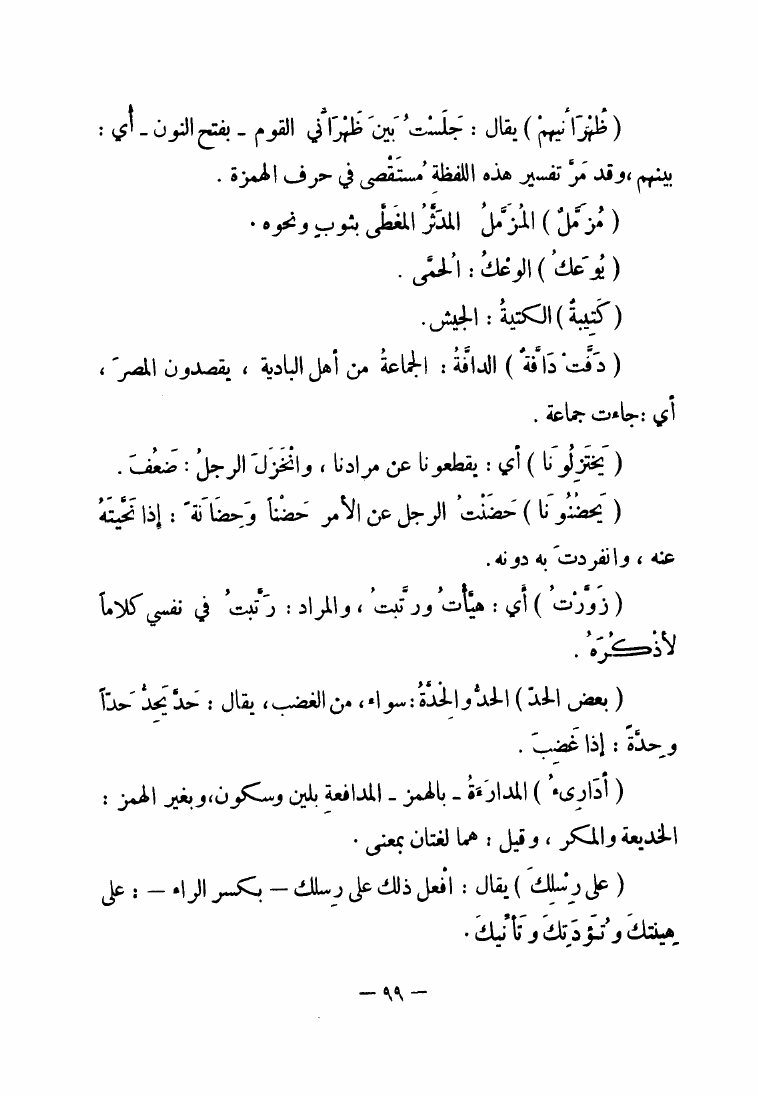 ( ظَهْرَانَيهِمْ ) يقال : جَلَسْتُ بَينَ ظَهْرَانَي القوم ـ بفتح النون ـ أي :
بينهم ، وقد مَرَّ تفسير هذه اللفظةِ مُستَقْصى في حرف الهمزة .
( مُزَمَّلٌ ) المُزَمَّلُ المدَثَّرُ المغَطَّى بثوبٍ ونحوه .
( يُوعَكُ ) الوعْكُ : الحُمَّى .
( كَتِيبةٌ ) الكتيبةُ : الجيش .
( دَفَّتْ دَافَّةٌ ) الدافَّةُ : الجماعةُ من أهل البادية ، يقصدون المصرَ ،
أي : جاءت جماعة .
( يَختَزِلُونَا ) أي : يقطعونا عن مرادنا ، وانْخَزَلَ الرجلُ : ضَعُفَ .
( يَحضُنُونَا ) حَضَنْتُ الرجل عن الأمر حَضْناً وَحِضَانَةً : إذا نَحَّيتَهُ
عنه ، وانفردتَ به دونه .
( زَوَّرْتُ ) أي : هيَّأتُ ورتَّبتُ ، والمراد : رَتَّبتُ في نفسي كلاماً
لأذْكُرَهُ .
( بعض الحدّ ) الحدُّ والحِدَّةُ : سواء ، من الغضب ، يقال : حَدَّ يَحِدُّ حَدّاً
وحِدَّةً : إذا غَضِبَ .
( أدَارِىءُ ) المدارَءَةُ ـ بالهمز ـ المدافعةِ بلين وسكون ، وبغير الهمز :
الخديعة والمكر ، وقيل : هما لغتان بمعنى .
( على رِسْلِكَ ) يقال : افْعل ذلك على رِسلك – بكسر الراء – : على
هِينتكَ وتُؤَدَتِكَ وتَأنِّيكَ .
— ٩٩ —